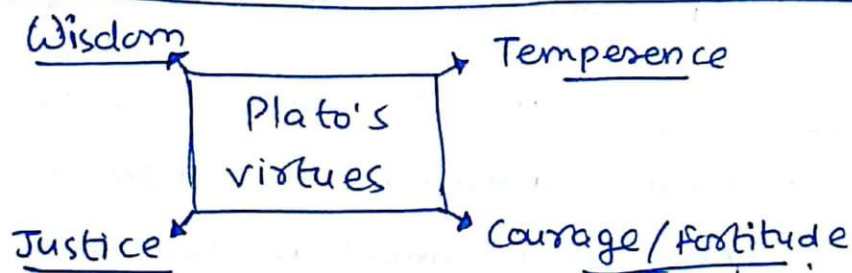 Wisdom
Temperence
Plato's
virtues
Justice
Courage/fortitude